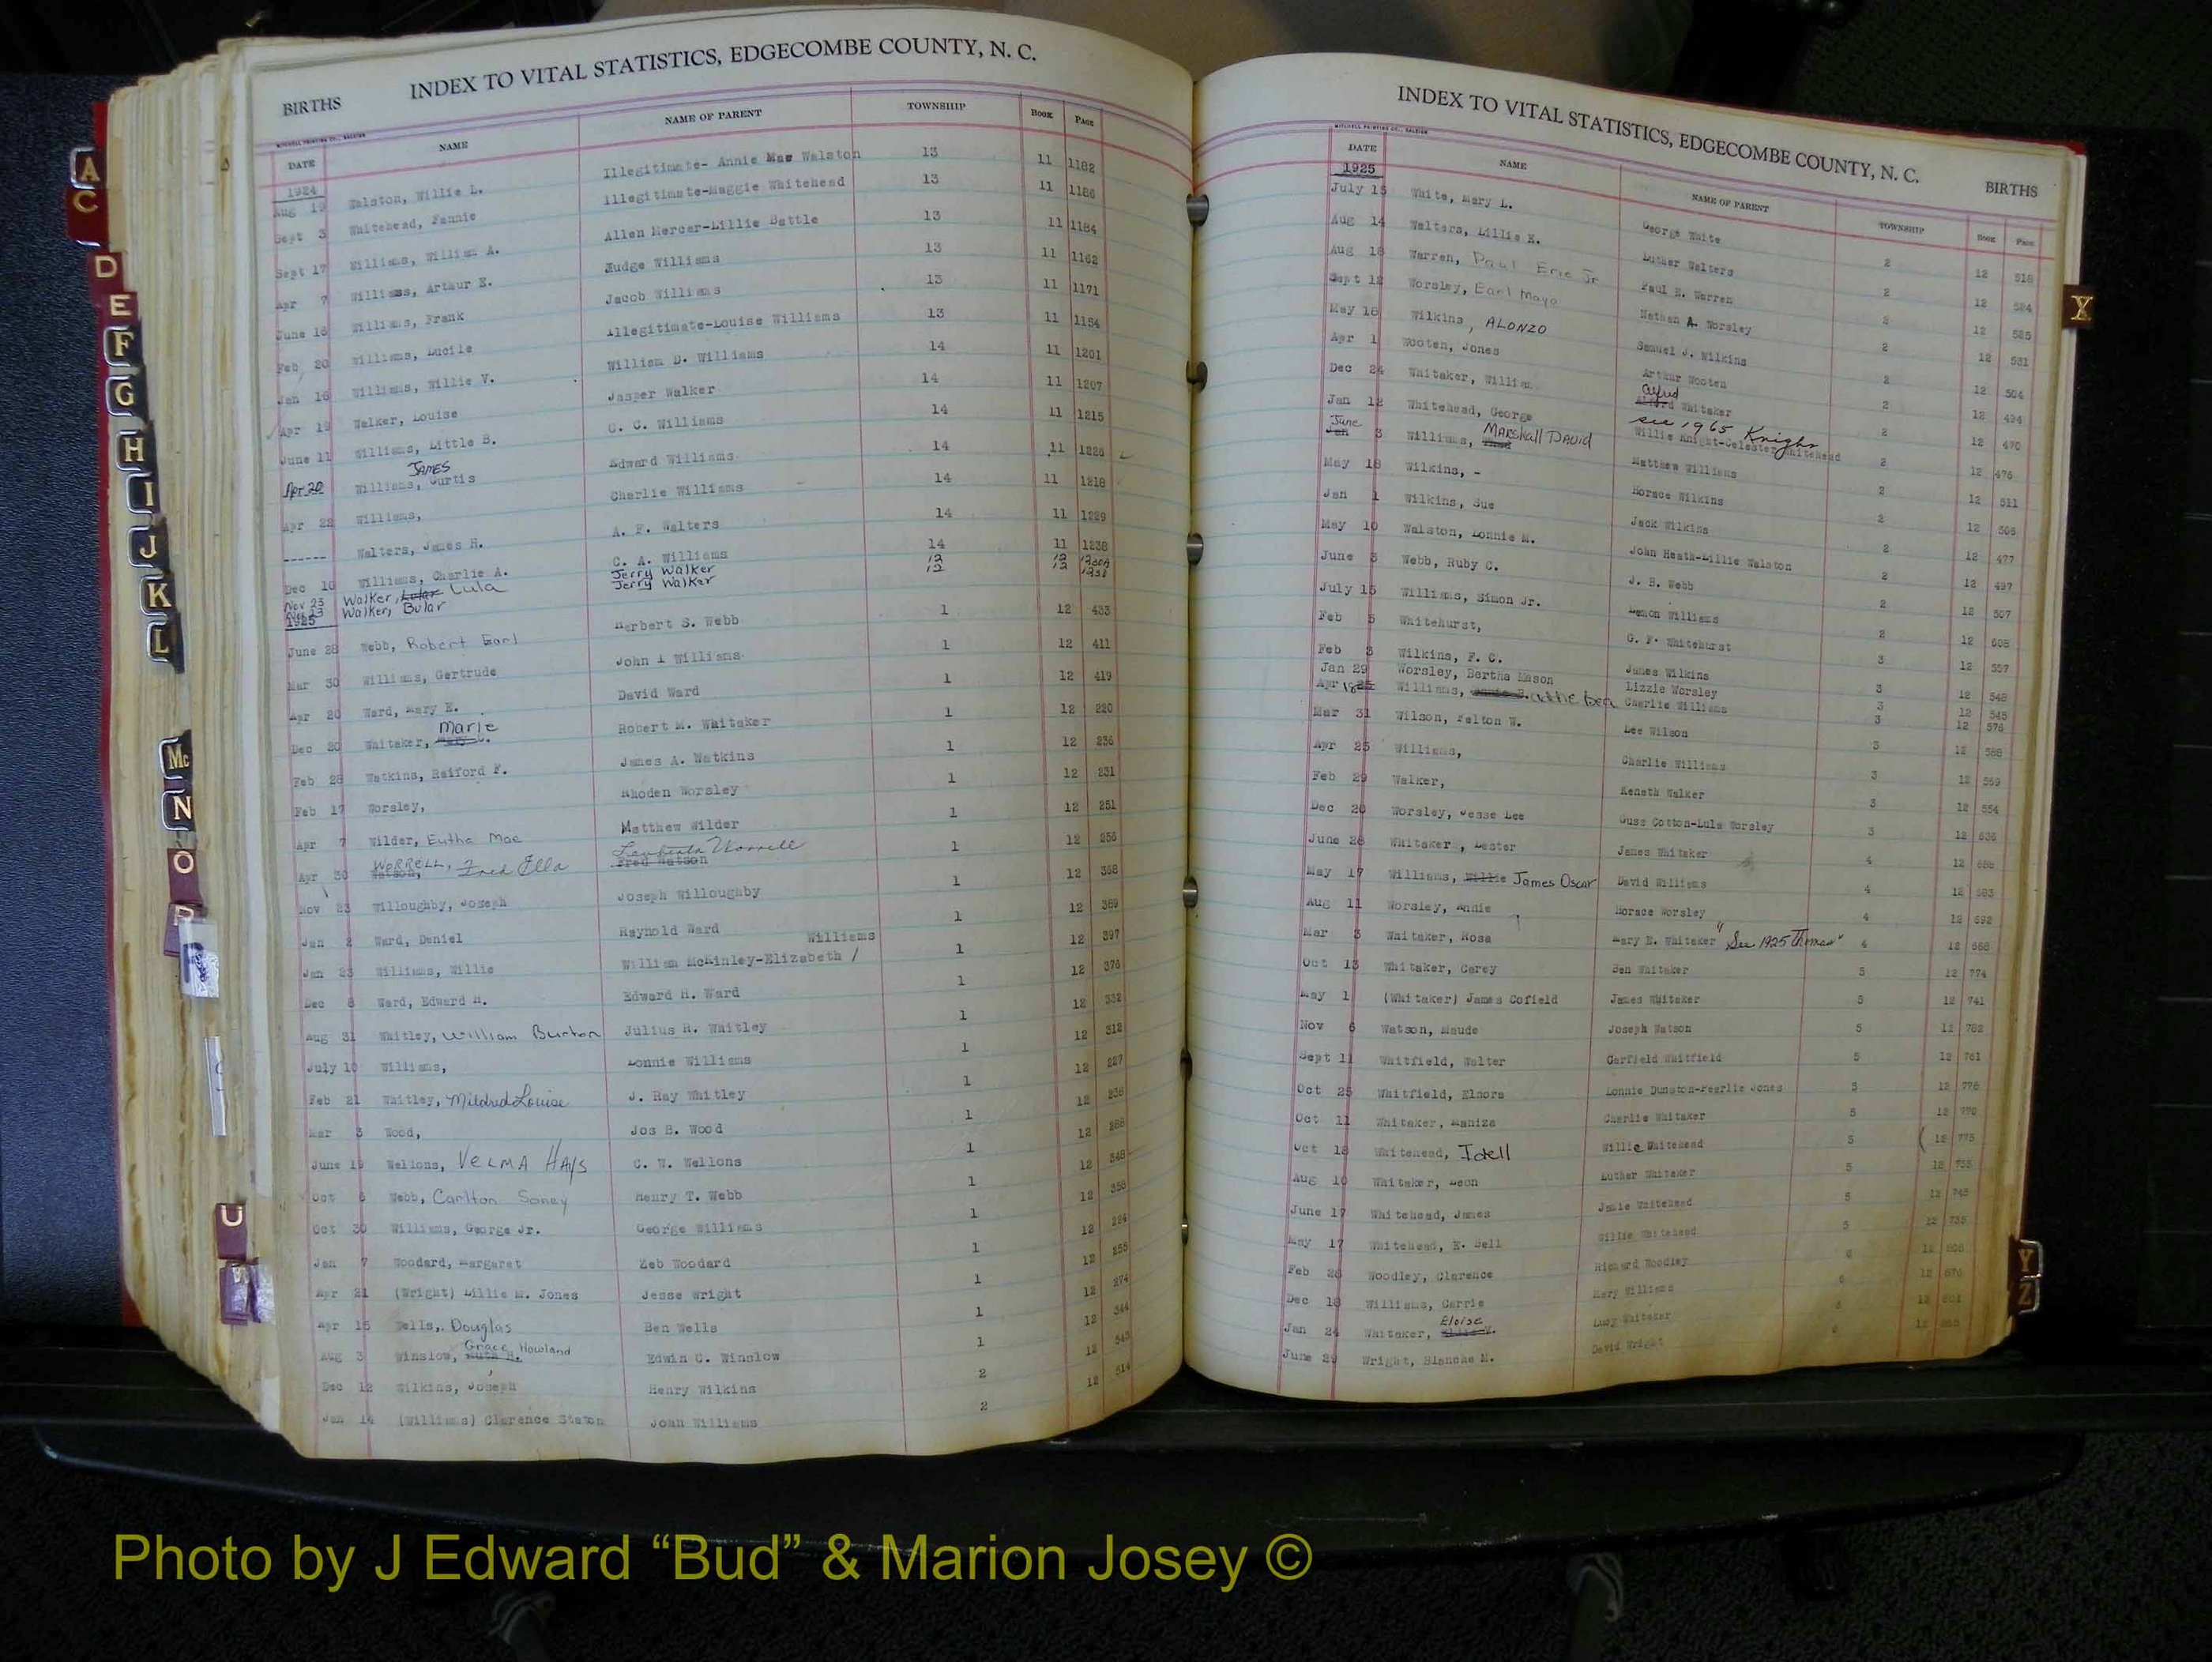 INDEX TO VITAL STATISTICS, EDGECOMBE COUNTY, N. C.
BIRTHS
MITCHELL PRINTING CO., RALEIGH
DATE NAME NAME OF PARENT TOWNSHIP BOOK PAGE
1924
Aug 19 Walston, Willie L. Illegitimate- Annie Mae Walston 13 11 1182
Sept 3 Whitehead, Fannie Illegitimate-Maggie Whitehead 13 11 1186
Sept 17 Williams, William A. Allen Mercer-Lillie Battle 13 11 1184
Apr 7 Williams, Arthur E. Judge Williams 13 11 1162
June 16 Williams, Frank Jacob Williams 13 11 1171
Feb 20 Williams, Lucile Illegitimate-Louise Williams 13 11 1154
Jan 16 Williams, Willie V. William D. Williams 14 11 1201
Apr 19 Walker, Louise Jasper Walker 14 11 1207
June 11 Williams, Little B. C. C. Williams 14 11 1215
Apr 20 Williams, JAMES Curtis Edward Williams 14 11 1226
Apr 22 Williams, Charlie Williams 14 11 1218
------ Walters, James H. A. F. Walters 14 11 1229
Dec 10 Williams, Charlie A. C. A. Williams 14 11 1238
Nov 23 Walker, Lula Jerry Walker 12 12
Nov 23 Walker, Bular Jerry Walker 12 12
1925
June 28 Webb, Robert Earl Herbert S. Webb 1 12 433
Mar 30 Williams, Gertrude John I Williams 1 12 411
Apr 20 Ward, Mary E. David Ward 1 12 419
Dec 20 Whitaker, Marie Robert M. Whitaker 1 12 220
Feb 28 Watkins, Raiford F. James A. Watkins 1 12 236
Feb 17 Worsley, Rhoden Worsley 1 12 231
Apr 7 Wilder, Eutha Mae Matthew Wilder 1 12 251
Apr 30 Watson, WORRELL, Fred Ella Fred Watson Worrell 1 12 256
Nov 23 Willoughby, Joseph Joseph Willoughby 1 12 368
Jan 2 Ward, Daniel Raynold Ward 1 12 389
Jan 23 Williams, Willie William McKinley-Elizabeth / Williams 1 12 397
Dec 8 Ward, Edward H. Edward H. Ward 1 12 376
Aug 31 Whitley, William Burton Julius R. Whitley 1 12 332
July 10 Williams, Lonnie Williams 1 12 312
Feb 21 Whitley, Mildred Louise J. Ray Whitley 1 12 227
Mar 3 Wood, Jos B. Wood 1 12 238
June 15 Wellons, VELMA HAYS C. W. Wellons 1 12 288
Oct 6 Webb, Carlton Henry T. Webb 1 12 348
Oct 30 Williams, George Jr. George Williams 1 12 358
Jan 7 Woodard, Margaret Zeb Woodard 1 12
Apr 21 (Wright) Lillie M. Jones Jesse Wright 1 12 255
Apr 15 Wells, Douglas Ben Wells 1 12 274
Aug 3 Winslow, Ruth H. Grace Howland Edwin C. Winslow 1 12 344
Dec 12 Wilkins, Joseph Henry Wilkins 2 12
Jan 14 (Williams) Clarence Staton John Williams 2 12 514
INDEX TO VITAL STATISTICS, EDGECOMBE COUNTY, N. C.
BIRTHS
MITCHELL PRINTING CO., RALEIGH
DATE NAME NAME OF PARENT TOWNSHIP BOOK PAGE
1925
July 15 White, Mary L. George White 2 12 518
Aug 14 Walters, Lillie E. Luther Walters 2 12 524
Aug 18 Warren, Paul Eric Jr Paul E. Warren 2 12 525
Sept 12 Worsley, Earl Mayo Nathan A. Worsley 2 12 531
May 18 Wilkins, ALONZO Samuel J. Wilkins 2 12 504
Apr 1 Wooten, Jones Arthur Wooten 2 12 494
Dec 24 Whitaker, William Alfred Whitaker 2 12 470
Jan 12 Whitehead, George Willie Knight-Celester Whitehead see 1965 Knight 2 12 476
June 3 Williams, MARSHALL DAVID Matthew Williams 2 12 511
May 18 Wilkins, - Horace Wilkins 2 12 505
Jan 1 Wilkins, Sue Jack Wilkins 2 12 477
May 10 Walston, Lonnie M. John Heath-Lillie Walston 2 12 497
June 3 Webb, Ruby C. J. B. Webb 2 12 507
July 15 Williams, Simon Jr. Lemon Williams 2 12 608
Feb 5 Whitehurst, G. F. Whitehurst 3 12 557
Feb 3 Wilkins, F. C. James Wilkins 3 12 548
Jan 29 Worsley, Bertha Mason Lizzie Worsley 3 12 545
Apr Williams, Attie Bea Charlie Williams 3 12 576
Mar 31 Wilson, Felton W. Lee Wilson 3 12
Apr 25 Williams, Charlie Williams 3 12 569
Feb 29 Walker, Keneth Walker 3 12 554
Dec 20 Worsley, Jesse Lee Guss Cotton-Lula Worsley 3 12 636
June 28 Whitaker, Lester James Whitaker 4 12
May 17 Williams, Willie James Oscar David Williams 4 12
Aug 11 Worsley, Annie Horace Worsley 4 12 692
Mar 3 Whitaker, Rosa Mary E. Whitaker "See 1925 Thomas" 4 12 668
Oct 13 Whitaker, Carey Ben Whitaker 5 12 774
May 1 (Whitaker) James Cofield James Whitaker 5 12 741
Nov 6 Watson, Maude Joseph Watson 5 12 782
Sept 11 Whitfield, Walter Garfield Whitfield 5 12 761
Oct 25 Whitfield, Elnora Lonnie Dunston-Pearlie Jones 5 12 776
Oct 11 Whitaker, Maniza Charlie Whitaker 5 12 770
Oct 18 Whitehead, Idell Willie Whitehead 5 12 775
Aug 10 Whitaker, Leon Luther Whitaker 5 12
June 17 Whitehead, James Jamie Whitehead 5 12 745
May 17 Whitehead, E. Bell Willie Whitehead 5 12 735
Feb 28 Woodley, Clarence Richard Woodley 6 12
Dec 18 Williams, Carrie Mary Williams 6 12
Jan 24 Whitaker, Eloise Lucy Whitaker 12
June 29 Wright, Blanche M. David Wright 6 12
A
C
D
E
F
G
H
I
J
K
L
Mc
N
O
P
R
U
W
X
Y
Z
Photo by J Edward “Bud” & Marion Josey ©